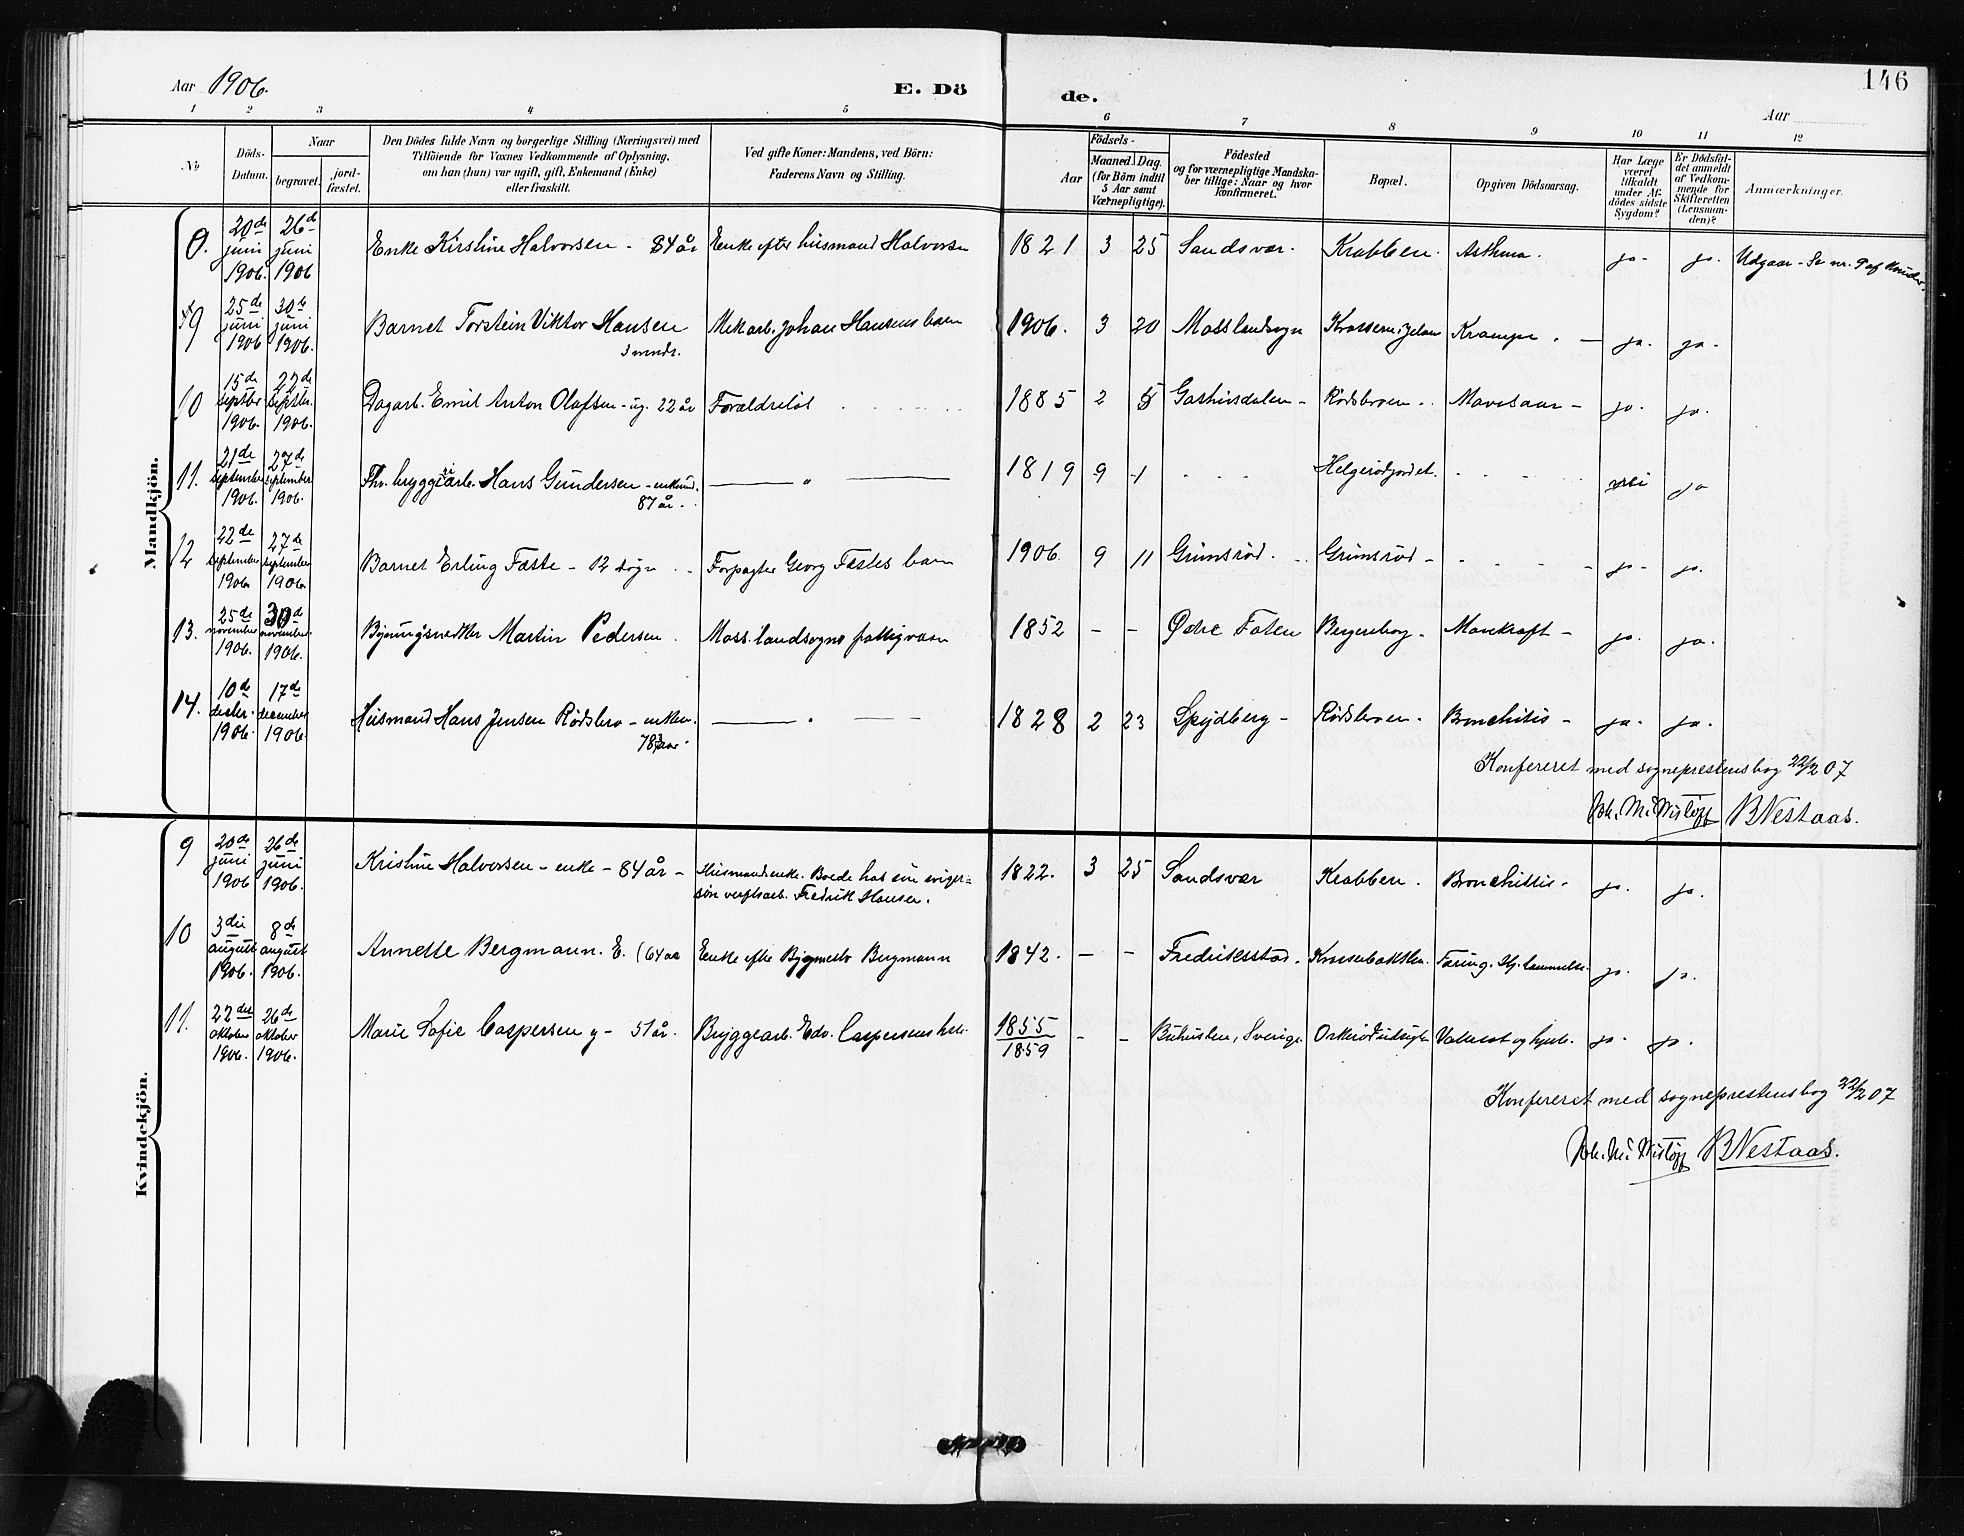 Aar 1906.
E. Dö
de.
Aar
146
1 2 3 4 5 6 7 8 9 10 11 12
No
Döds-Datum.
Naar
begravet.
jord-fæstet.
Den Dödes fulde Navn og borgerlige Stilling (Næringsvei) med
Tilföiende for Voxnes Vedkommende af Oplysning,
om han (hun) var ugift, gift, Enkemand (Enke)
eller fraskilt.
Ved gifte Koner: Mandens, ved Börn:
Faderens Navn og Stilling.
Födsels-
Aar
Maaned
Dag.
(for Börn indtil
5 Aar samt
Værnepligtige).
Födested
og for værnepligtige Mandska-
ber tillige: Naar og hvor
konfirmeret.
Bopæl.
Opgiven Dödsaarsag.
Har Læge
været
tilkaldt
under Af-
dödes sidste
Sygdom?
Er Dödsfal-
det anmeldt
af Vedkom-
mende for
Skifteretten
(Lensman-
den)?
Anmærkninger.
Mandkjön.
0. 20de juni 1906. 26d juni 1906 Enke Kirstine Halvorsen - 84 år Enke efter husmand Halvorsen 1821 3 25 Sandsvær. Krabben. Asthma. ja. ja. Udgaar - Se nr. 9 af Kvinder.
9 25de juni 1906 30te juni 1906. Barnet Torstein Viktor Hansen 3 mndr. Mek arb. Johan Hansens barn 1906. 3 20 Moss landsogn Krampe. ja. ja.
10 15de septber 1906. 22de septbr. 1906. Dagarb. Emil Anton Olafsen - ug. 22 år Forældreløs 1885 2 5 Rødsbroen - ja. ja.
11. 21de september 1906. 27de september 1906. Fhv. bryggearb. Hans Gundersen - enkmd. 87 år. — " — 1819 9 1 Helgerødjordet. nei ja
12 22de september 1906. 27de september 1906. Barnet Erling Fæste - 12 døgn Forpagter Georg Fæstes barn 1906 9 11 Grimsrød. Grimsrød - ja. ja.
13. 25de november 1906. 30d november 1906. Bygningssnedker Martin Pedersen. Moss. landsogns fattigvæsen 1852 - - Østre Toten Bergersborg. Mavekræft - ja. ja.
14. 10de decbr. 1906. 17de december 1906. Husmand Hans Jensen Rødsbro - enkem. 78 aar. — " — 1828 2 23 Spydberg - Rødsbroen. Bronchitis - ja. ja.
Konfereret med sogneprestens bog 22/2 07
BNestaas.
Kvindekjön.
9 20de juni 1906 26de juni 1906. Kristine Halvorsen - enke - 84 år - Husmandsenke. Boede hos sin sviger-
søn verftsarb. Fredrik Hansen. 1822. 3 25 Sandsvær Krabben. Bronchittis. ja. ja.
10 3die august 1906. 8de august 1906. Annette Bergmann. E. (64 aar Enke efter Bygmester Bergmann 1842. - - Fredriksstad. ja. ja.
11. 22de oktober 1906. 26de oktober 1906. Marie Sofie Caspersen g - 51 år. Bryggearb. Edv. Caspersens hst. 1855 1859 - - Buhuslen, Sverige. ja. ja.
Konfereret med sogneprestens bog 22/2 07
BNestaas.